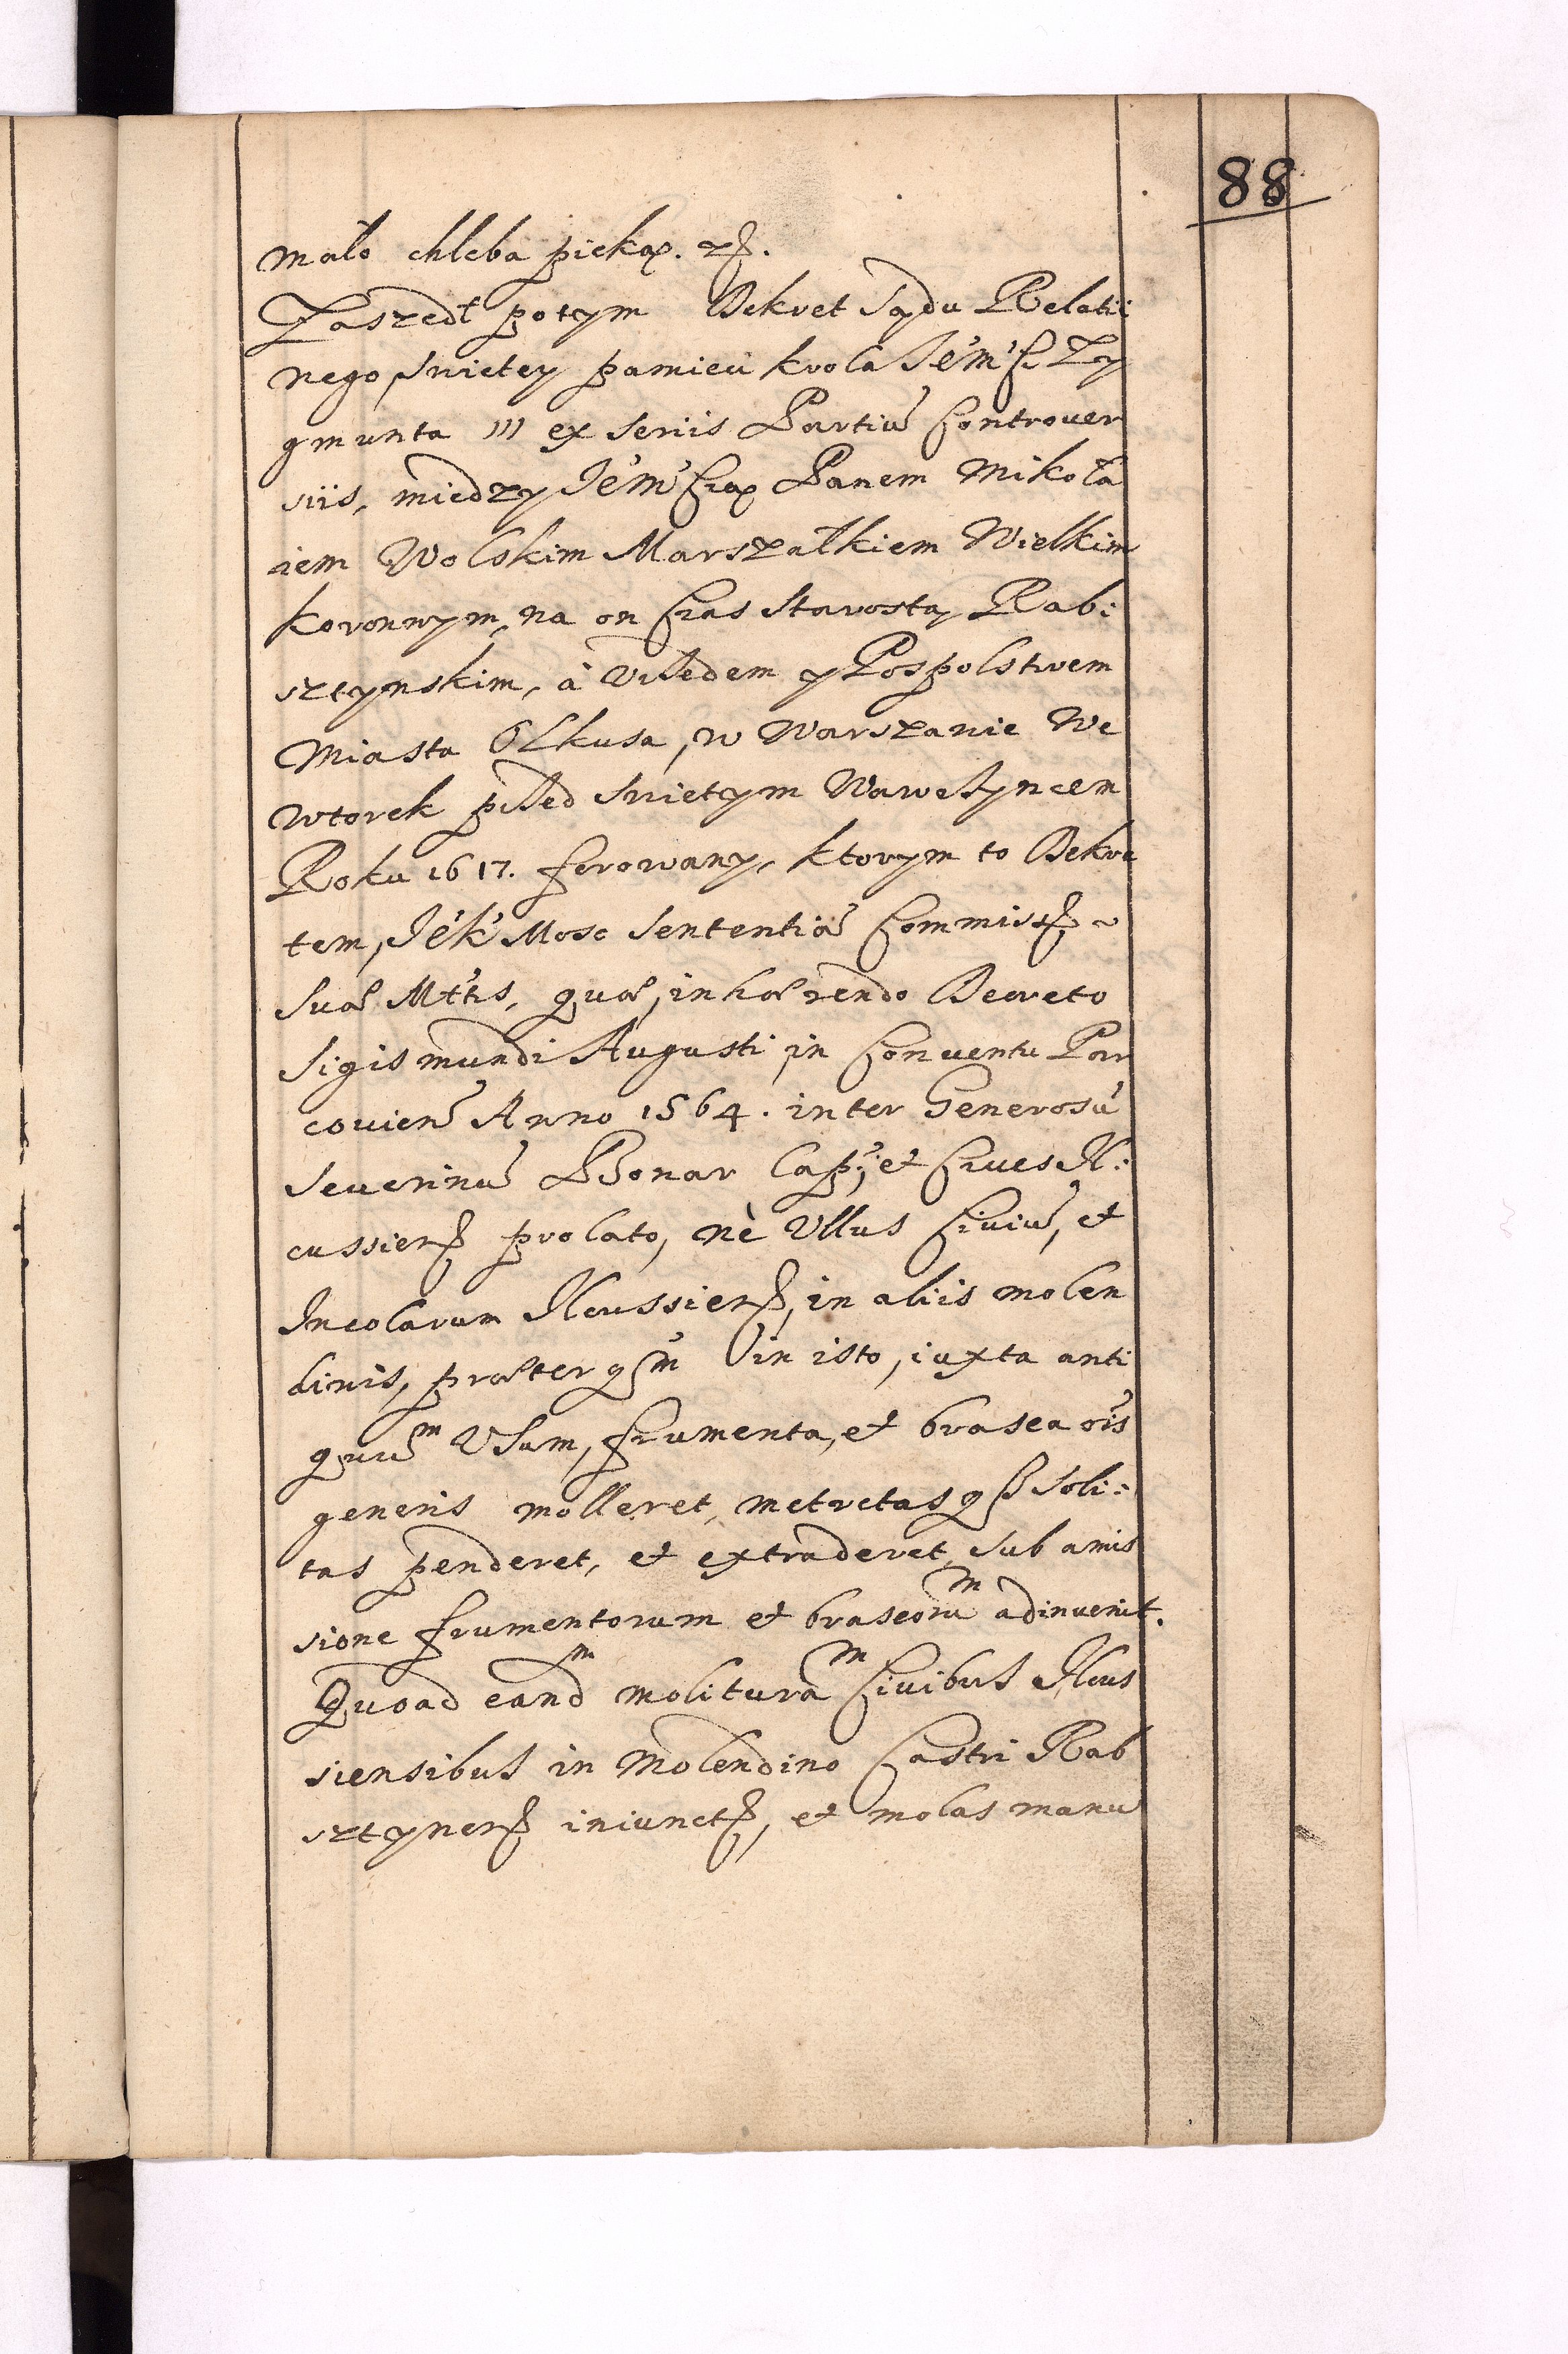 88
mało chleba pieką. etc.
Zaszedł potym Dekret Sądu Relatii
nego swietey pamieci krola Je᾽m᾽ści Zy
gmunta III ex seriis Partiũ Controuer
siis, miedzy Je᾽m᾽ścią Panem Mikoła
iem Wolskim Marszałkiem Wielkim
koronnym, na on czas starostą Rab:
sztynskim, à Vrzedem y Pospolstwem
Miasta Olkusa, w Warszawie We
wtorek przed swietym Wawrzyncem
Roku 1617. ferowany, ktorym to Dekre
tem, Je᾽k᾽ Mosc sententiã Commiss:
suæ Mttis, quæ, inhærendo Decreto
Sigismundi Augusti in Conuentu Par
couien̄ Anno 1564. inter Generosũ
Seuerinũ Bonar Cap: et Ciues Il:
cussien̄ prolato, nè Vllus Ciuiũ, et
Incolarum Ilcussien̄, in aliis molen
dinis, præterqm̃ in isto, iuxta anti
quũm Vsum, frumenta, et brasea oı̃s
generis molleret, metretasq3 soli:
tas penderet, et extraderet sub amis
sione frumentorum et braseorũm adinuenit.
Quoad eandm moliturãm Ciuibus Ilcus
siensibus in Molendino Castri Rab
sztynen̄ iniunct, et molas manu